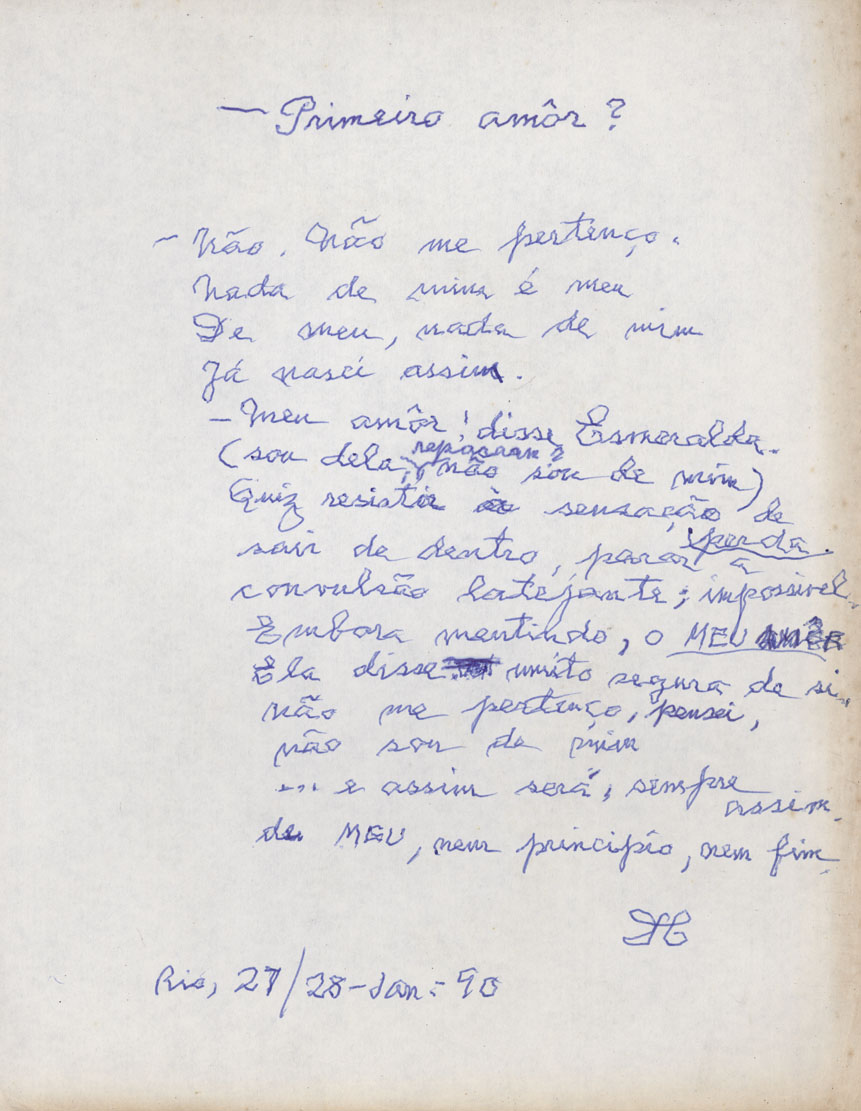 — Primeiro amôr?
– Não. Não me pertenço.
Nada de mim é meu
De meu, nada de mim
Já nasci assim.
– Meu amôr! disse Esmeralda.
(sou dela, repararam? não sou de mim)
Quiz resistir à sensação de perda.
sair de dentro, parar a
convulsão latejante; impossivel.
Embora mentindo, o MEU
Ela disse muito segura de si.
não me pertenço, pensei,
não sou de mim
.... e assim será, sempre
assim.
de MEU, nem principio, nem fim.
Rio, 27/28-Jan-90